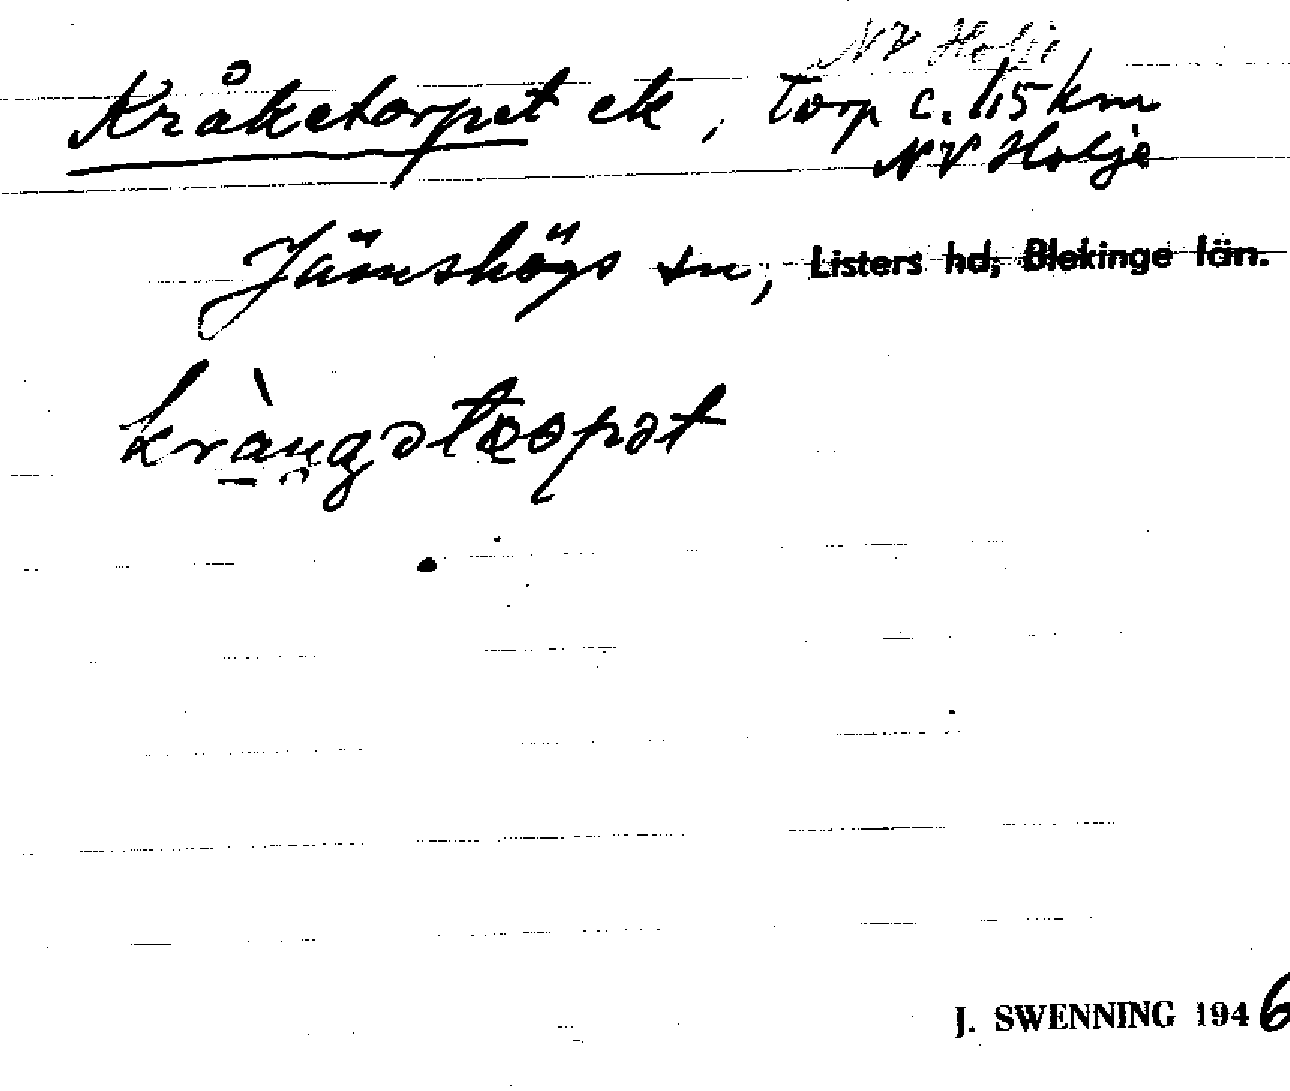 NV Holje
Kråketorpet ek, torp c. 1,5 km
NV Holje
Jämshögs sn, Listers hd, Blekinge län.
J. SWENNING 1946